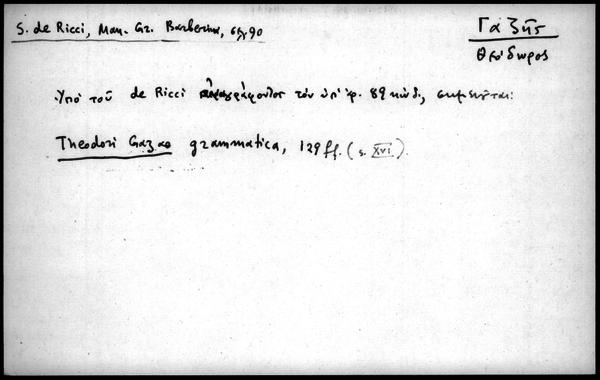 S. de Ricci, Man. Gr. Barberina, σελ. 90
Γαζῆς
Θεόδωρος
Ὑπὸ τοῦ de Ricci τὸν ὑπ' ἀρ. 89 κώδ., σημειοῦται:
Theodori Gazae grammatica, 129 ff. (s. XVI).